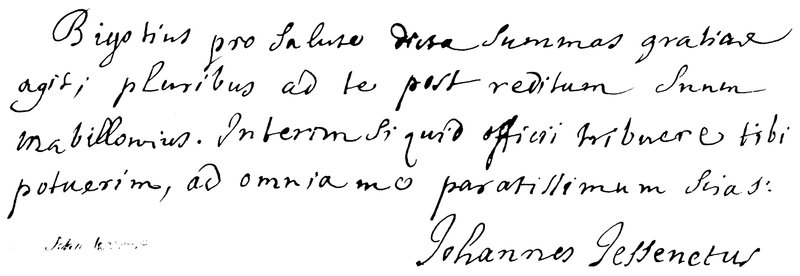 Bigotius pro salute dicta summas gratias
agit; pluribus ad te post reditum suum
mabillonius. Interim si quid officii tribuere tibi
potuerim, ad omnia me paratissimum scias:
Johannes Jessenetus